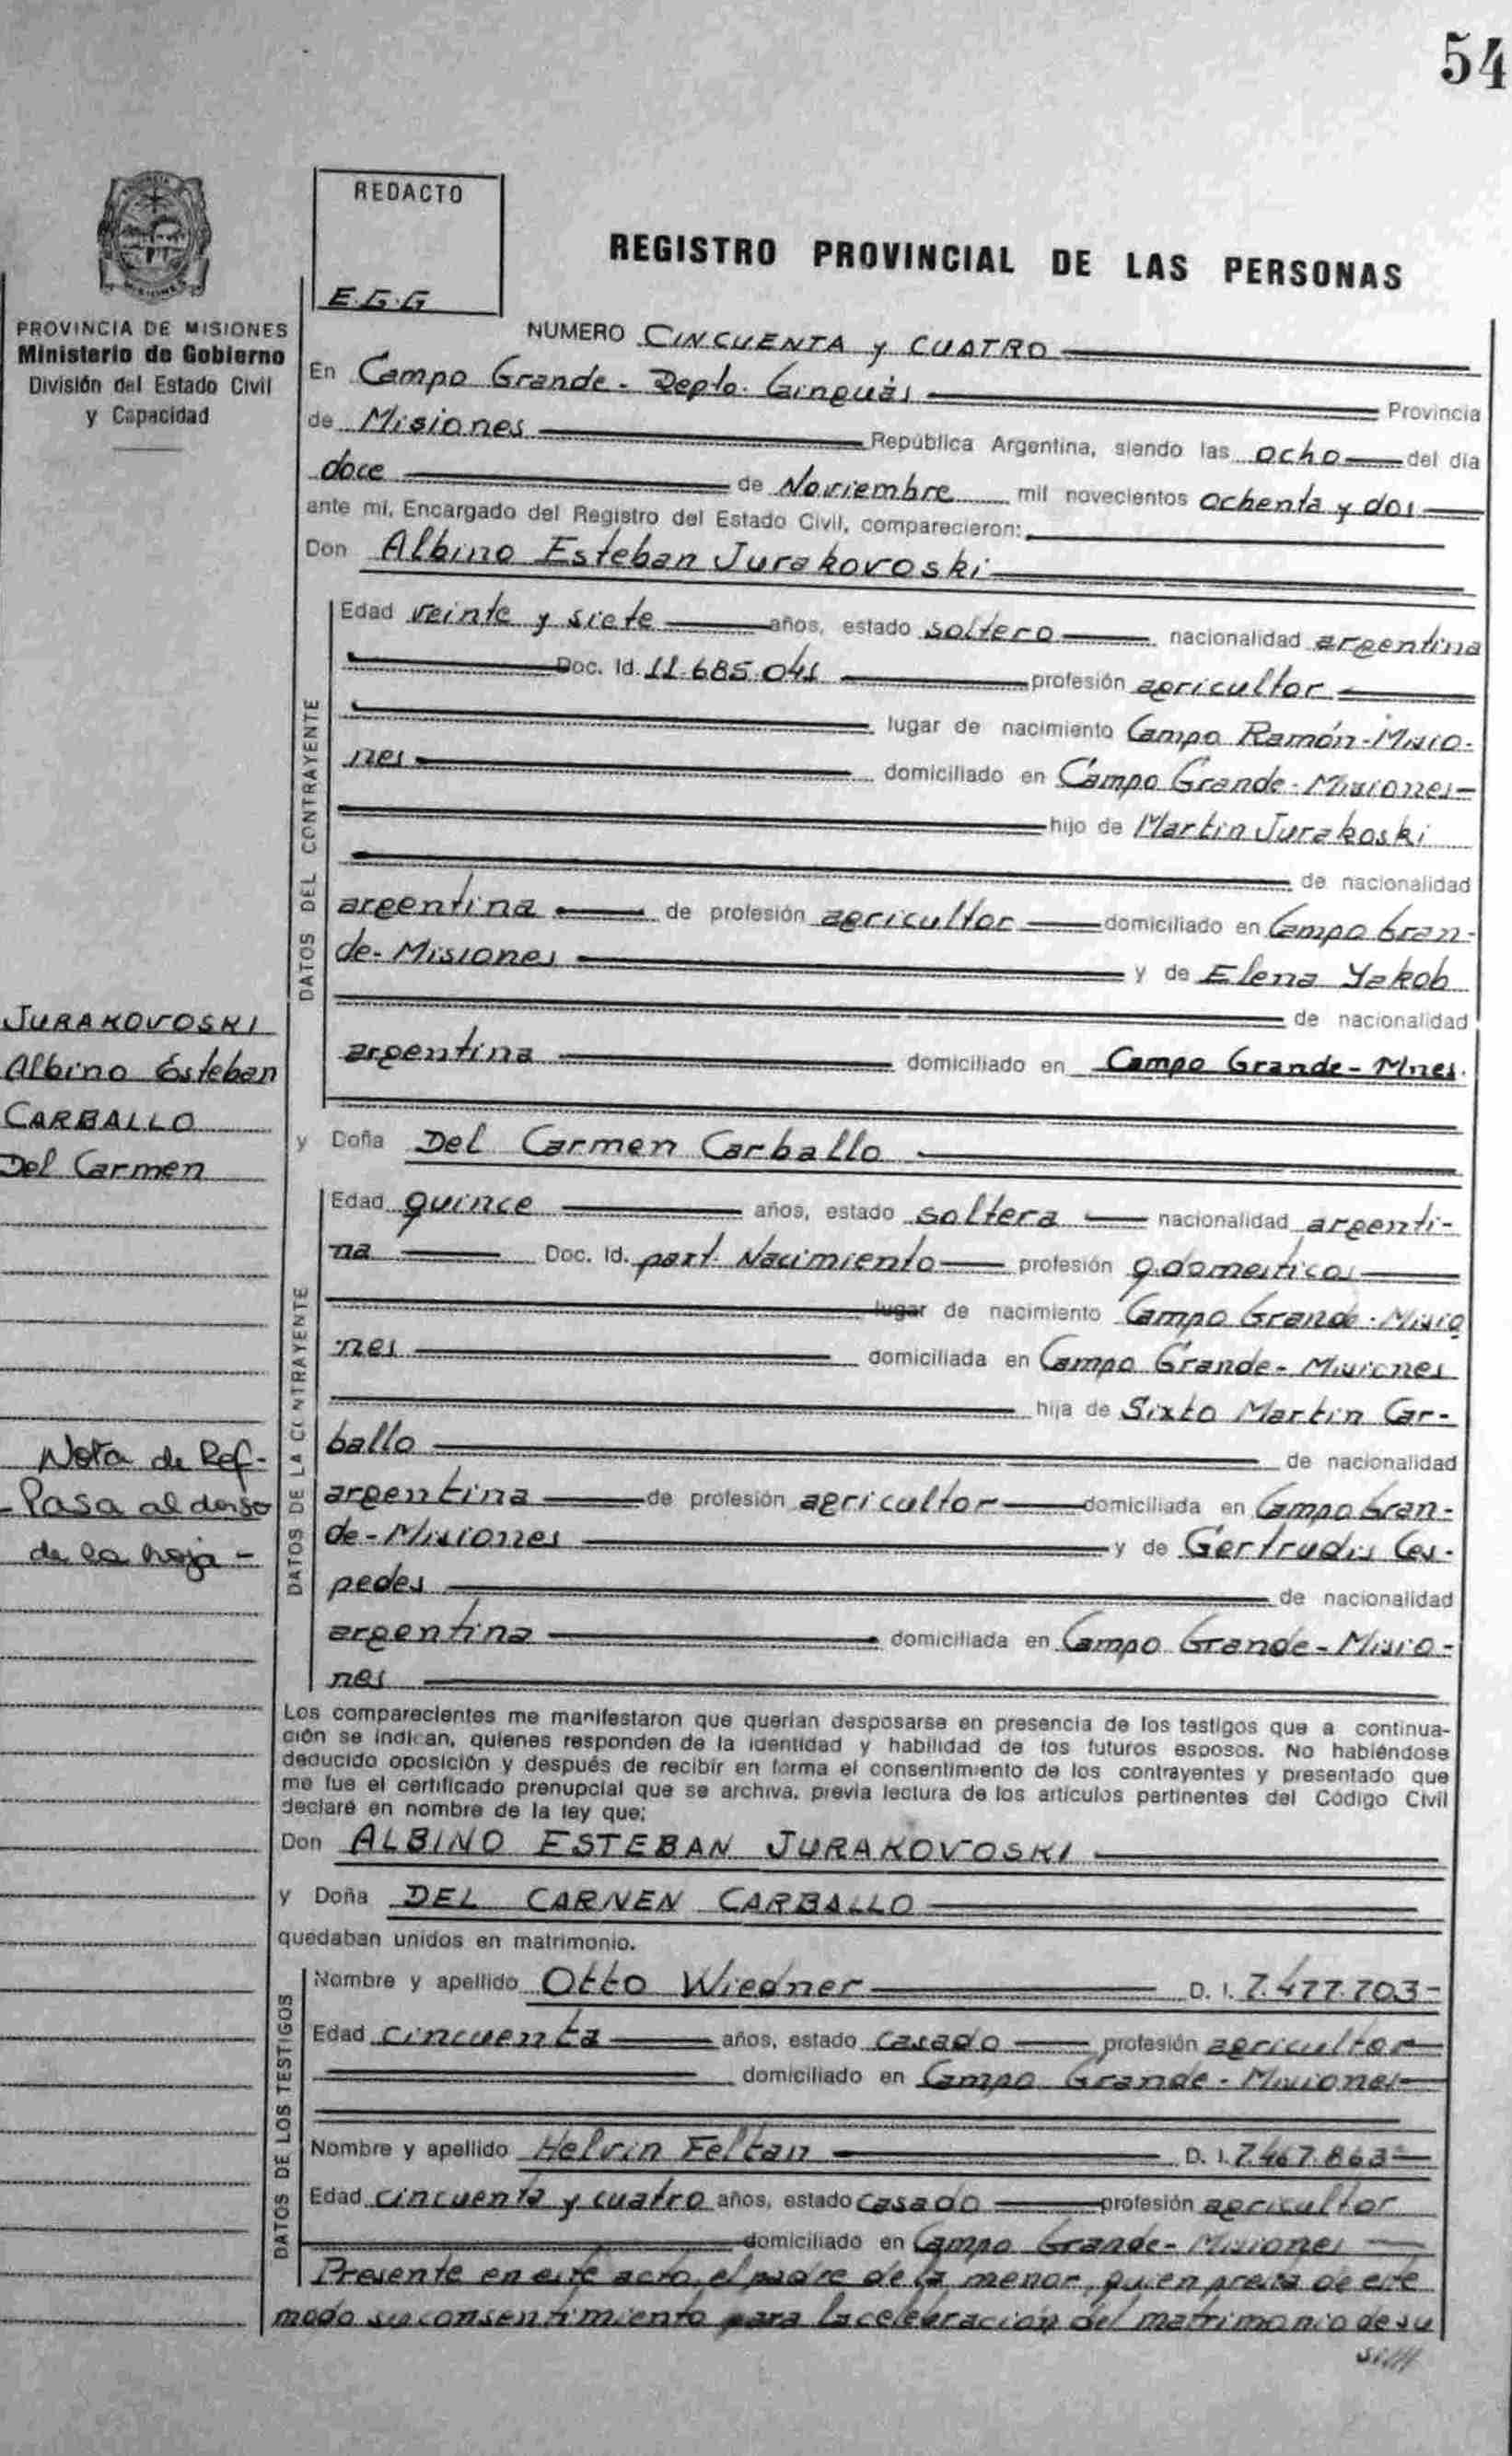 54
REDACTO
E.G.G
REGISTRO PROVINCIAL DE LAS PERSONAS
PROVINCIA DE MISIONES
Ministerio de Gobierno
División del Estado Civil
y Capacidad
NUMERO CINCUENTA y CUATRO
En Campo Grande - Depto. Cainguás Provincia
de Misiones República Argentina, siendo las ocho del día
doce de Noviembre mil novecientos ochenta y dos
ante mí, Encargado del Registro del Estado Civil, comparecieron:
Don Albino Esteban Jurakovoski
DATOS DEL CONTRAYENTE
Edad veinte y siete años, estado soltero nacionalidad argentina
Doc. Id. 11.685.041 profesión agricultor
lugar de nacimiento Campo Ramón-Misio-
nes domiciliado en Campo Grande-Misiones-
hijo de Martin Jurakoski
de nacionalidad
argentina de profesión agricultor domiciliado en Campo Gran-
de-Misiones y de Elena Yakob
de nacionalidad
argentina domiciliado en Campo Grande-Mnes.
JURAKOVOSKI
Albino Esteban
CARBALLO
Del Carmen
y Doña Del Carmen Carballo
DATOS DE LA CONTRAYENTE
Edad quince años, estado soltera nacionalidad argenti-
na Doc. Id. part. Nacimiento profesión q.domesticos
lugar de nacimiento Campo Grande-Misio
nes domiciliada en Campo Grande-Misiones
hija de Sixto Martin Car-
ballo de nacionalidad
argentina de profesión agricultor domiciliada en Campo Gran-
de-Misiones y de Gertrudis Ces-
pedes de nacionalidad
argentina domiciliada en Campo Grande-Misio-
nes
Nota de Ref-
-Pasa al dorso
de la hoja-
Los comparecientes me manifestaron que querían desposarse en presencia de los testigos que a continua-
ción se indican, quienes responden de la identidad y habilidad de los futuros esposos. No habiéndose
deducido oposición y después de recibir en forma el consentimiento de los contrayentes y presentado que
me fue el certificado prenupcial que se archiva, previa lectura de los artículos pertinentes del Código Civil
declaré en nombre de la ley que:
Don ALBINO ESTEBAN JURAKOVOSKI
y Doña DEL CARMEN CARBALLO
quedaban unidos en matrimonio.
DATOS DE LOS TESTIGOS
Nombre y apellido Otto Wiedner D. I. 7.477.703-
Edad cincuenta años, estado casado profesión agricultor
domiciliado en Campo Grande-Misiones
Nombre y apellido Helvin Feltan D. I. 7.467.863
Edad cincuenta y cuatro años, estado casado profesión agricultor
domiciliado en Campo Grande-Misiones
Presente en este acto, el padre de la menor, quien presta de este
modo su consentimiento para la celebración del matrimonio de su